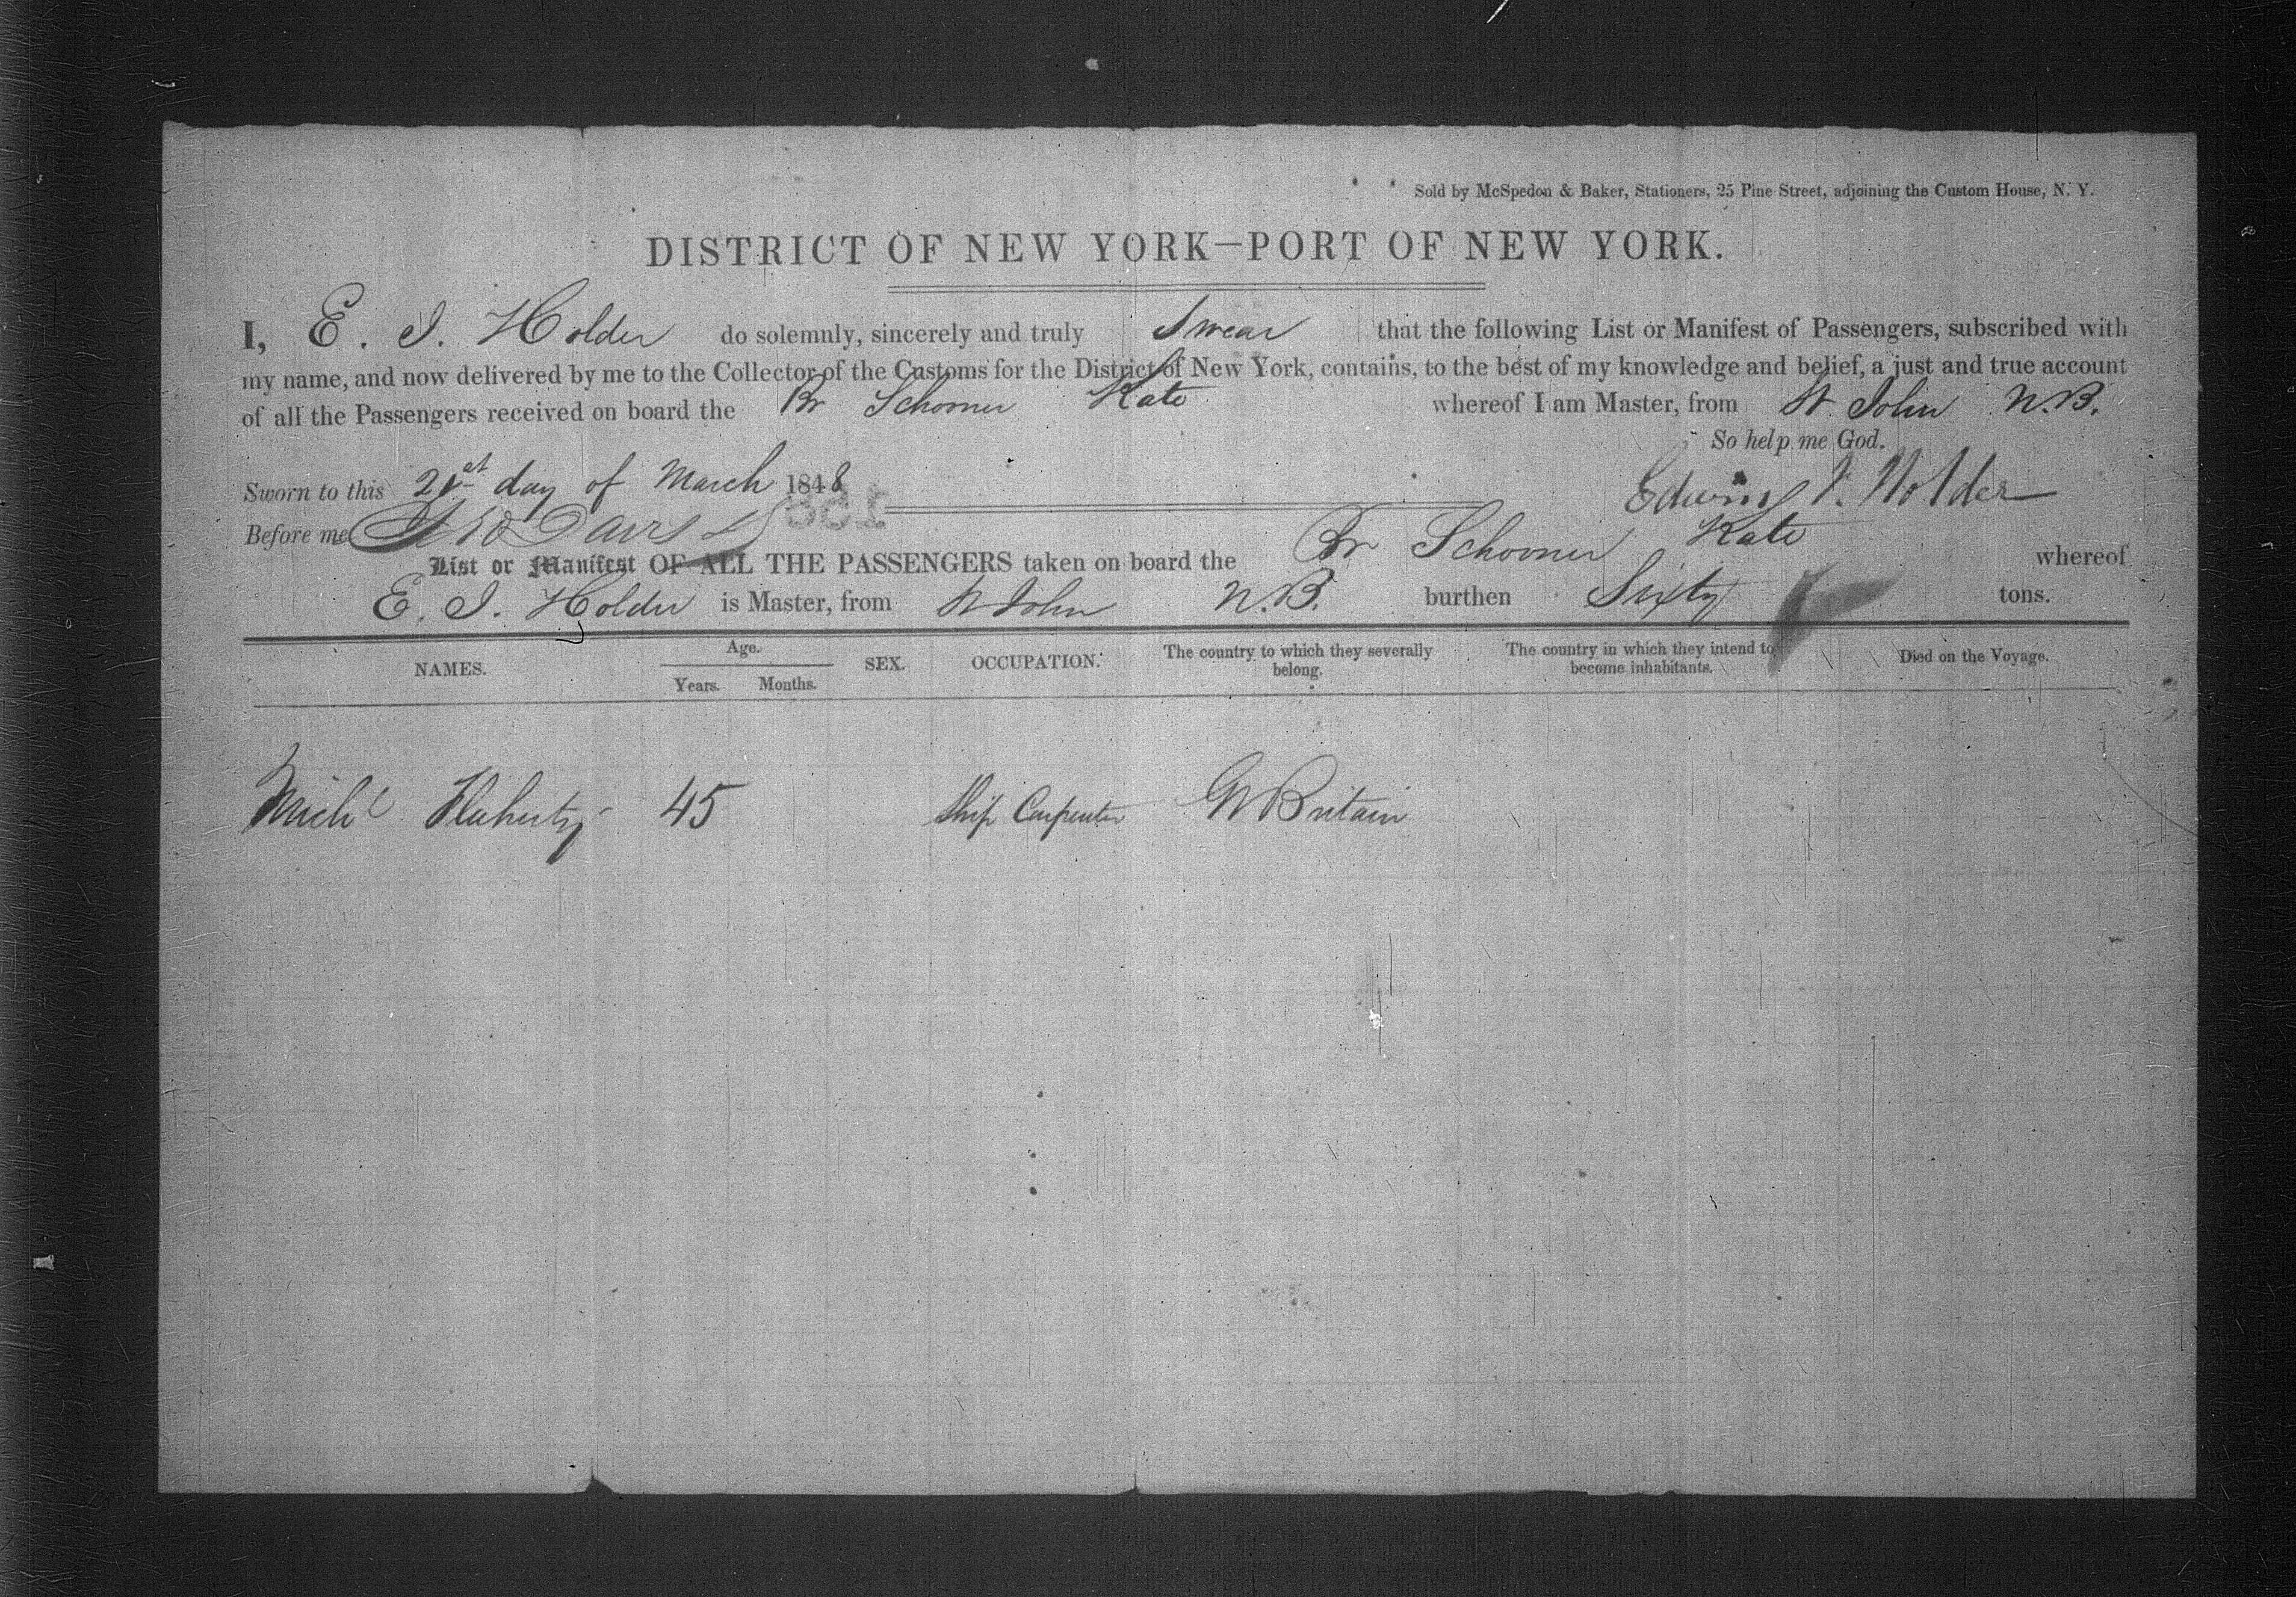 Sold by McSpedon & Baker, Stationers, 25 Pine Street, adjoining the Custom House, N. Y.
DISTRICT OF NEW YORK—PORT OF NEW YORK.
I, E. J. Holder do solemnly, sincerely and truly Swear that the following List or Manifest of Passengers, subscribed with
my name, and now delivered by me to the Collector of the Customs for the District of New York, contains, to the best of my knowledge and belief, a just and true account
of all the Passengers received on board the Br Schooner Kate whereof I am Master, from St John N.B.
So help me God.
Sworn to this 21st day of March 1848 Edwin J. Holder
Before me Davis
List or Manifest OF ALL THE PASSENGERS taken on board the Br Schooner Kate whereof
E. J. Holder is Master, from St John N.B. burthen Sixty tons.
NAMES. Age. Years. Months. SEX. OCCUPATION. The country to which they severally belong. The country in which they intend to become inhabitants. Died on the Voyage.
Michl Flaherty 45 Ship Carpenter Gt Britain